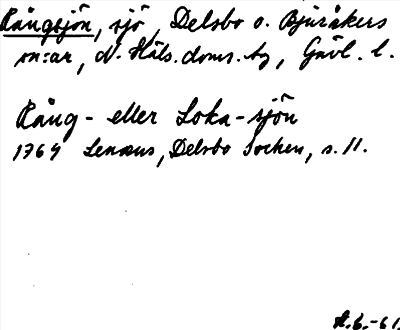 Rångsjön, sjö, Delsbo o. Bjuråkers
sn:ar, N. Häls. doms. by, Gävl. l.
Rång- eller Loka-sjön
1764 Lenæus, Delsbo Socken, s. 11.
A.b.-61.